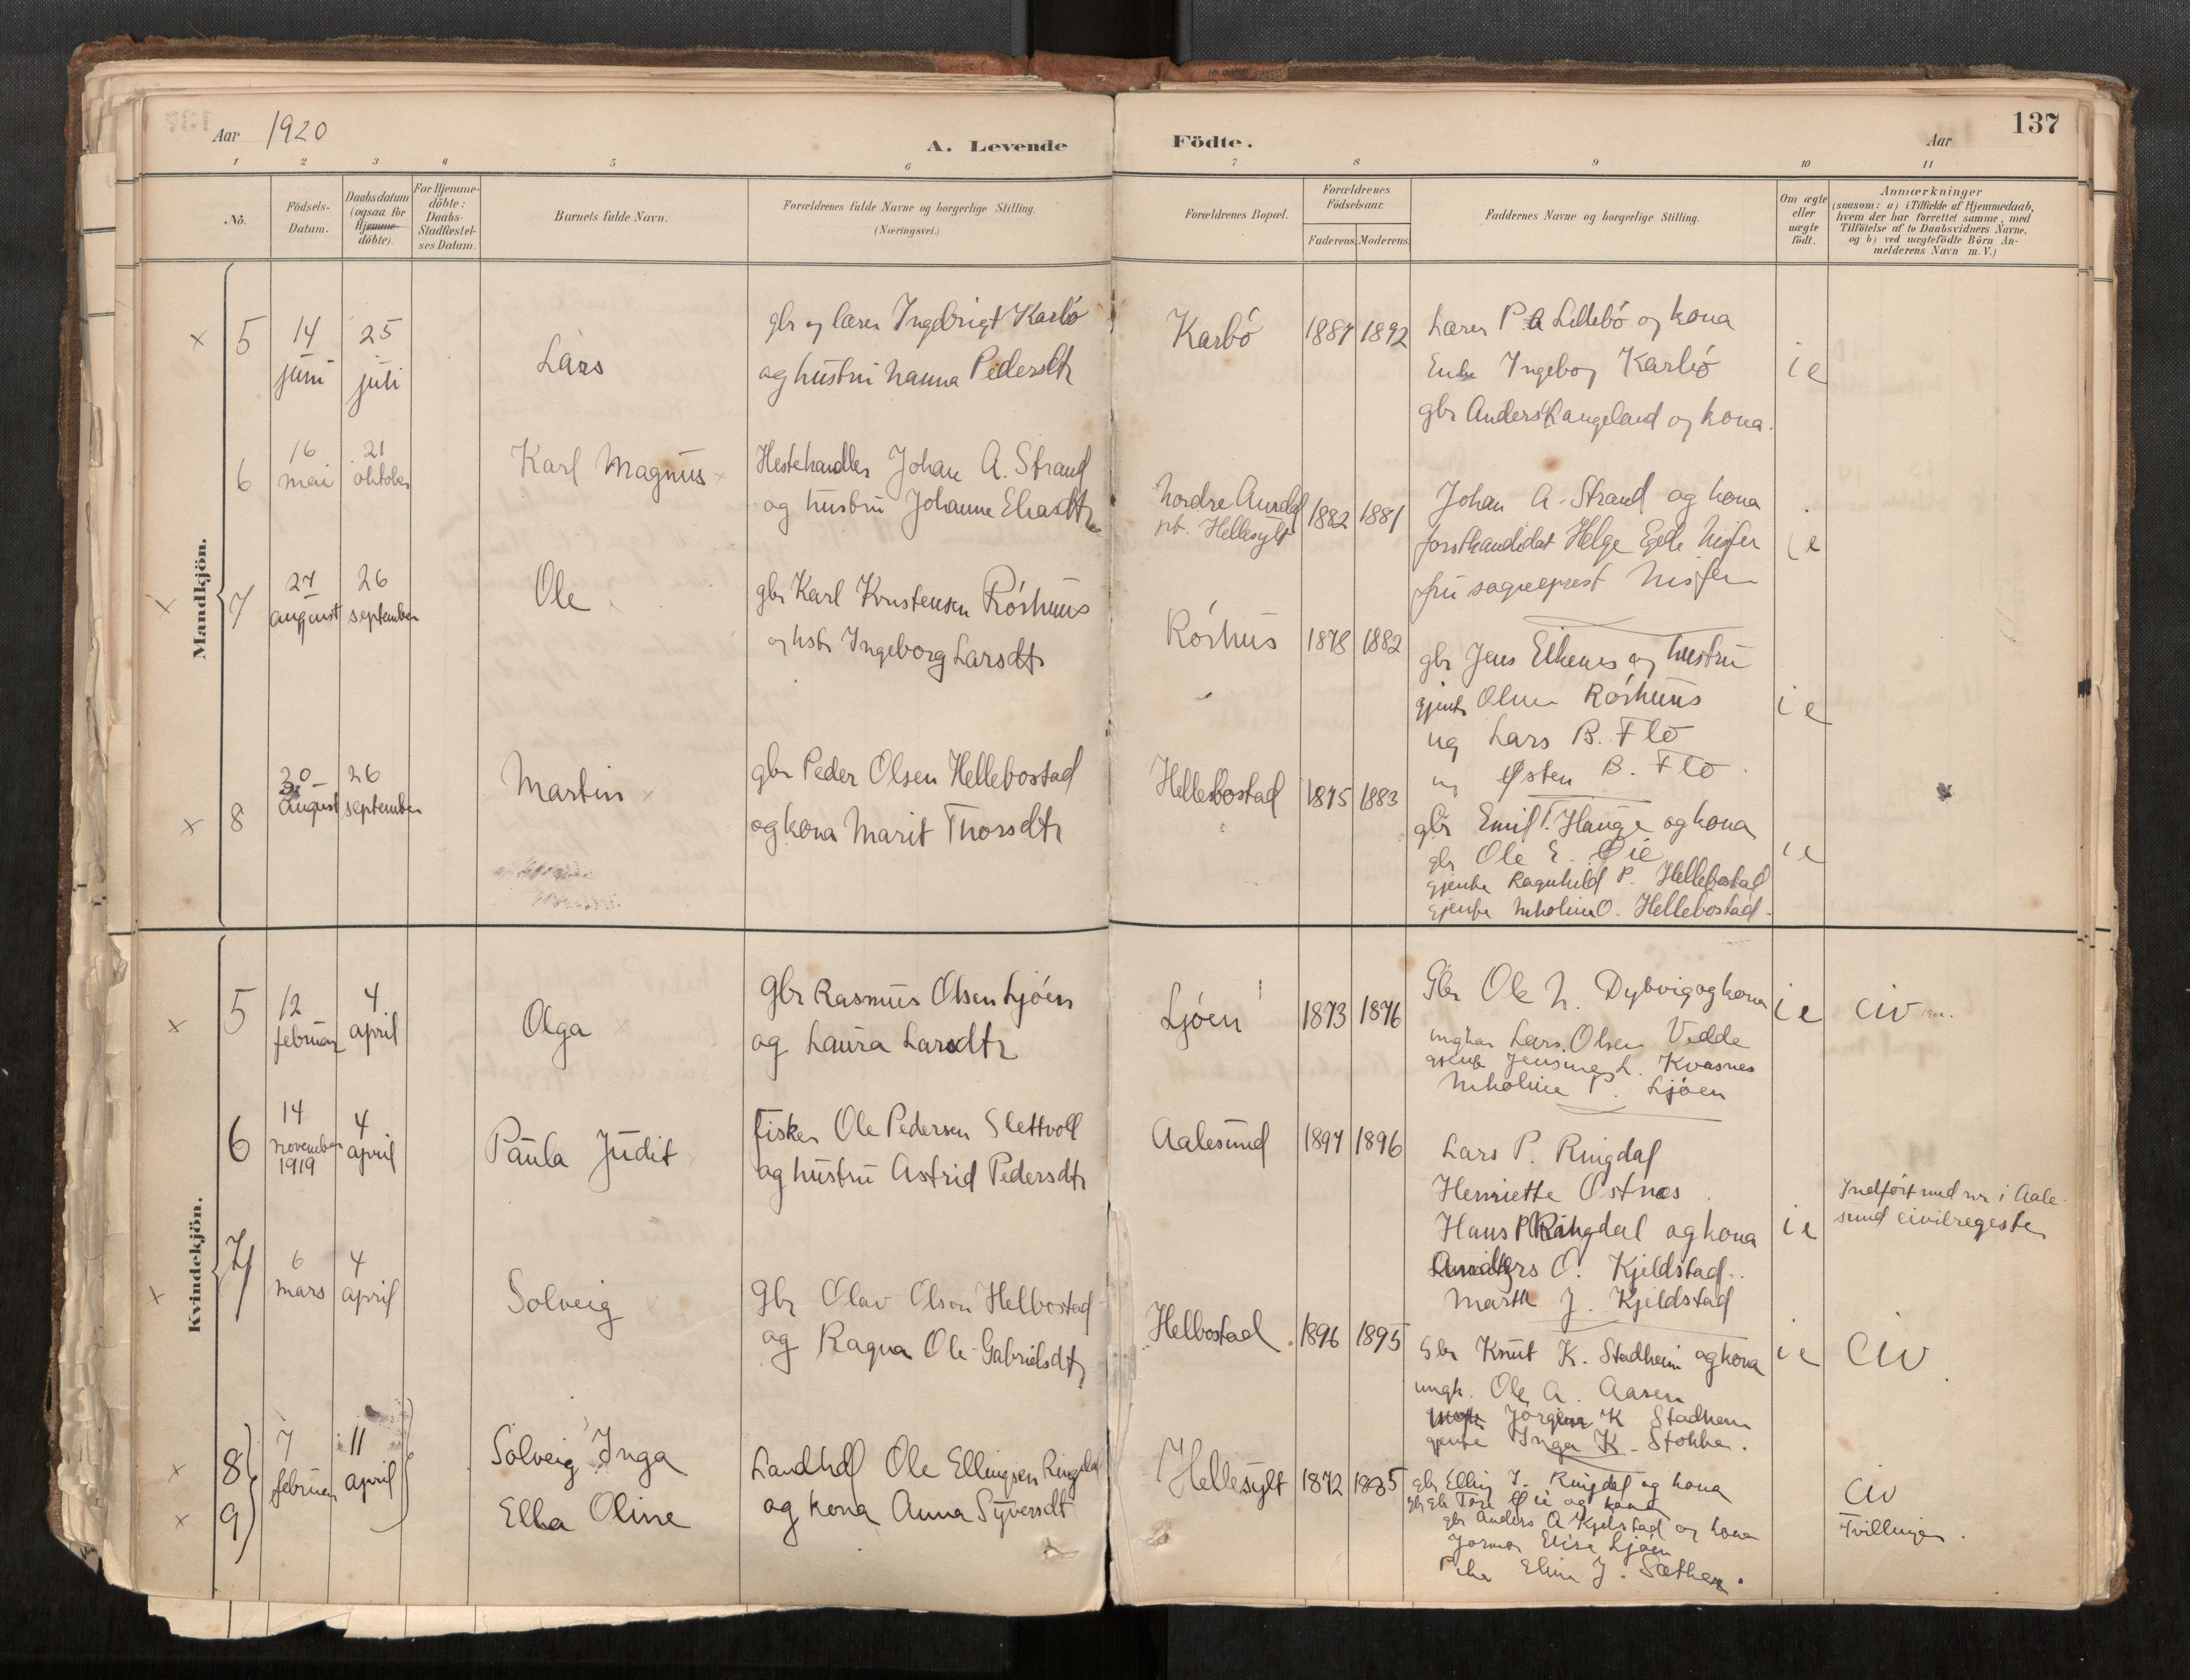 137
Aar 1920
A. Levende Födte.
Aar
1 2 3 4 5 6 7 8 9 10 11
No.
Födsels-
Datum.
Daabsdatum
(ogsaa for
Hjemme-
döbte).
For Hjemme-
döbte:
Daabs-
Stadfæstel-
ses Datum.
Barnets fulde Navn.
Forældrenes fulde Navne og borgerlige Stilling.
(Næringsvei.)
Forældrenes Bopæl.
Forældrenes
Födselsaar.
Faderens. Moderens.
Faddernes Navne og borgerlige Stilling.
Om ægte
eller
uægte
födt.
Anmærkninger
(saasom: a) i Tilfælde af Hjemmedaab,
hvem der har forrettet samme, med
Tilföielse af to Daabsvidners Navne.
og b) ved uægtefödte Börn An-
melderens Navn m. V.)
Mandkjön.
× 5
14
juni
25
juli
Lars
gbr og lærer Ingebrigt Karbö
og hustru Nanna Pedersdtr
Karbö
1887 1892
Lærer P A Lillebö og kona
Enke Ingeborg Karbö
gbr Anders Langeland og kona.
i e
6
16
mai
21
oktober
Karl Magnus ×
Hestehandler Johan A. Strand
og hustru Johanne Eliasdtr
Nordre Aurdal
pt. Hellesylt
1882 1881
Johan A. Strand og kona
forstkandidat Helge Egede Nissen
fru sogneprest Nissen
i e
× 7
27
august
26
september
Ole ×
gbr Karl Kristensen Rörhuus
og hstr Ingeborg Larsdtr
Rörhus
1878 1882
gbr Jens Eikenes og hustru
gjente Oline Rörhuus
ug Lars B. Flö
ug Østen B. Flö
i e
× 8
30
august
26
september
Martin ×
gbr Peder Olsen Hellebostad
og kona Marit Thorsdtr
Hellebostad
1875 1883
gbr Emil T. Hauge og kona
gbr Ole E. Øie
gjente Ragnhild P. Hellebostad
gjente Nikoline O. Hellebostad.
i e
Kvindekjön.
× 5
12
februar
4
april
Olga
Gbr Rasmus Olsen Ljöen
og Laura Larsdtr
Ljöen
1873 1876
Gbr Ole N. Dybvig og kona
ungkar Lars Olsen Vedde
gjente Jensine L. Kvasnes
Nikoline P. Ljöen
i e
civ
6
14
november
1919
4
april
Paula Judit
Fisker Ole Pedersen Slettvoll
og hustru Astrid Pedersdtr
Aalesund
1897 1896
Lars P. Ringdal
Henriette Östnes
Hans P Ringdal og kona
Anders O. Kjeldstad..
Marta J. Kjeldstad
i e
Indfört med nr i Aale-
sund civilregeste
× 7
6
mars
4
april
Solveig ×
Gbr Olav Olson Helbostad
og Ragna Ole-Gabrielsdtr
Helbostad
1896 1895
Gbr Knut K. Stadheim og kona
ungk. Ole A. Aasen
Jörgine K Stadheim
gjente Inga K. Stokke.
i e
CIV
× 8
× 9
7
februar
11
april
Solveig Inga
Ella Oline
Landhdl Ole Ellingsen Ringdal
og kona Anna Syversdt
Hellesylt
1872 1885
gbr Elling I. Ringdal og kona
gbr Tore Øie og kona
gbr Anders A Kjelstad og kona
Jormor Elise Ljöen
Pike Eline J. Sæther.
CIV
Tvillinger.